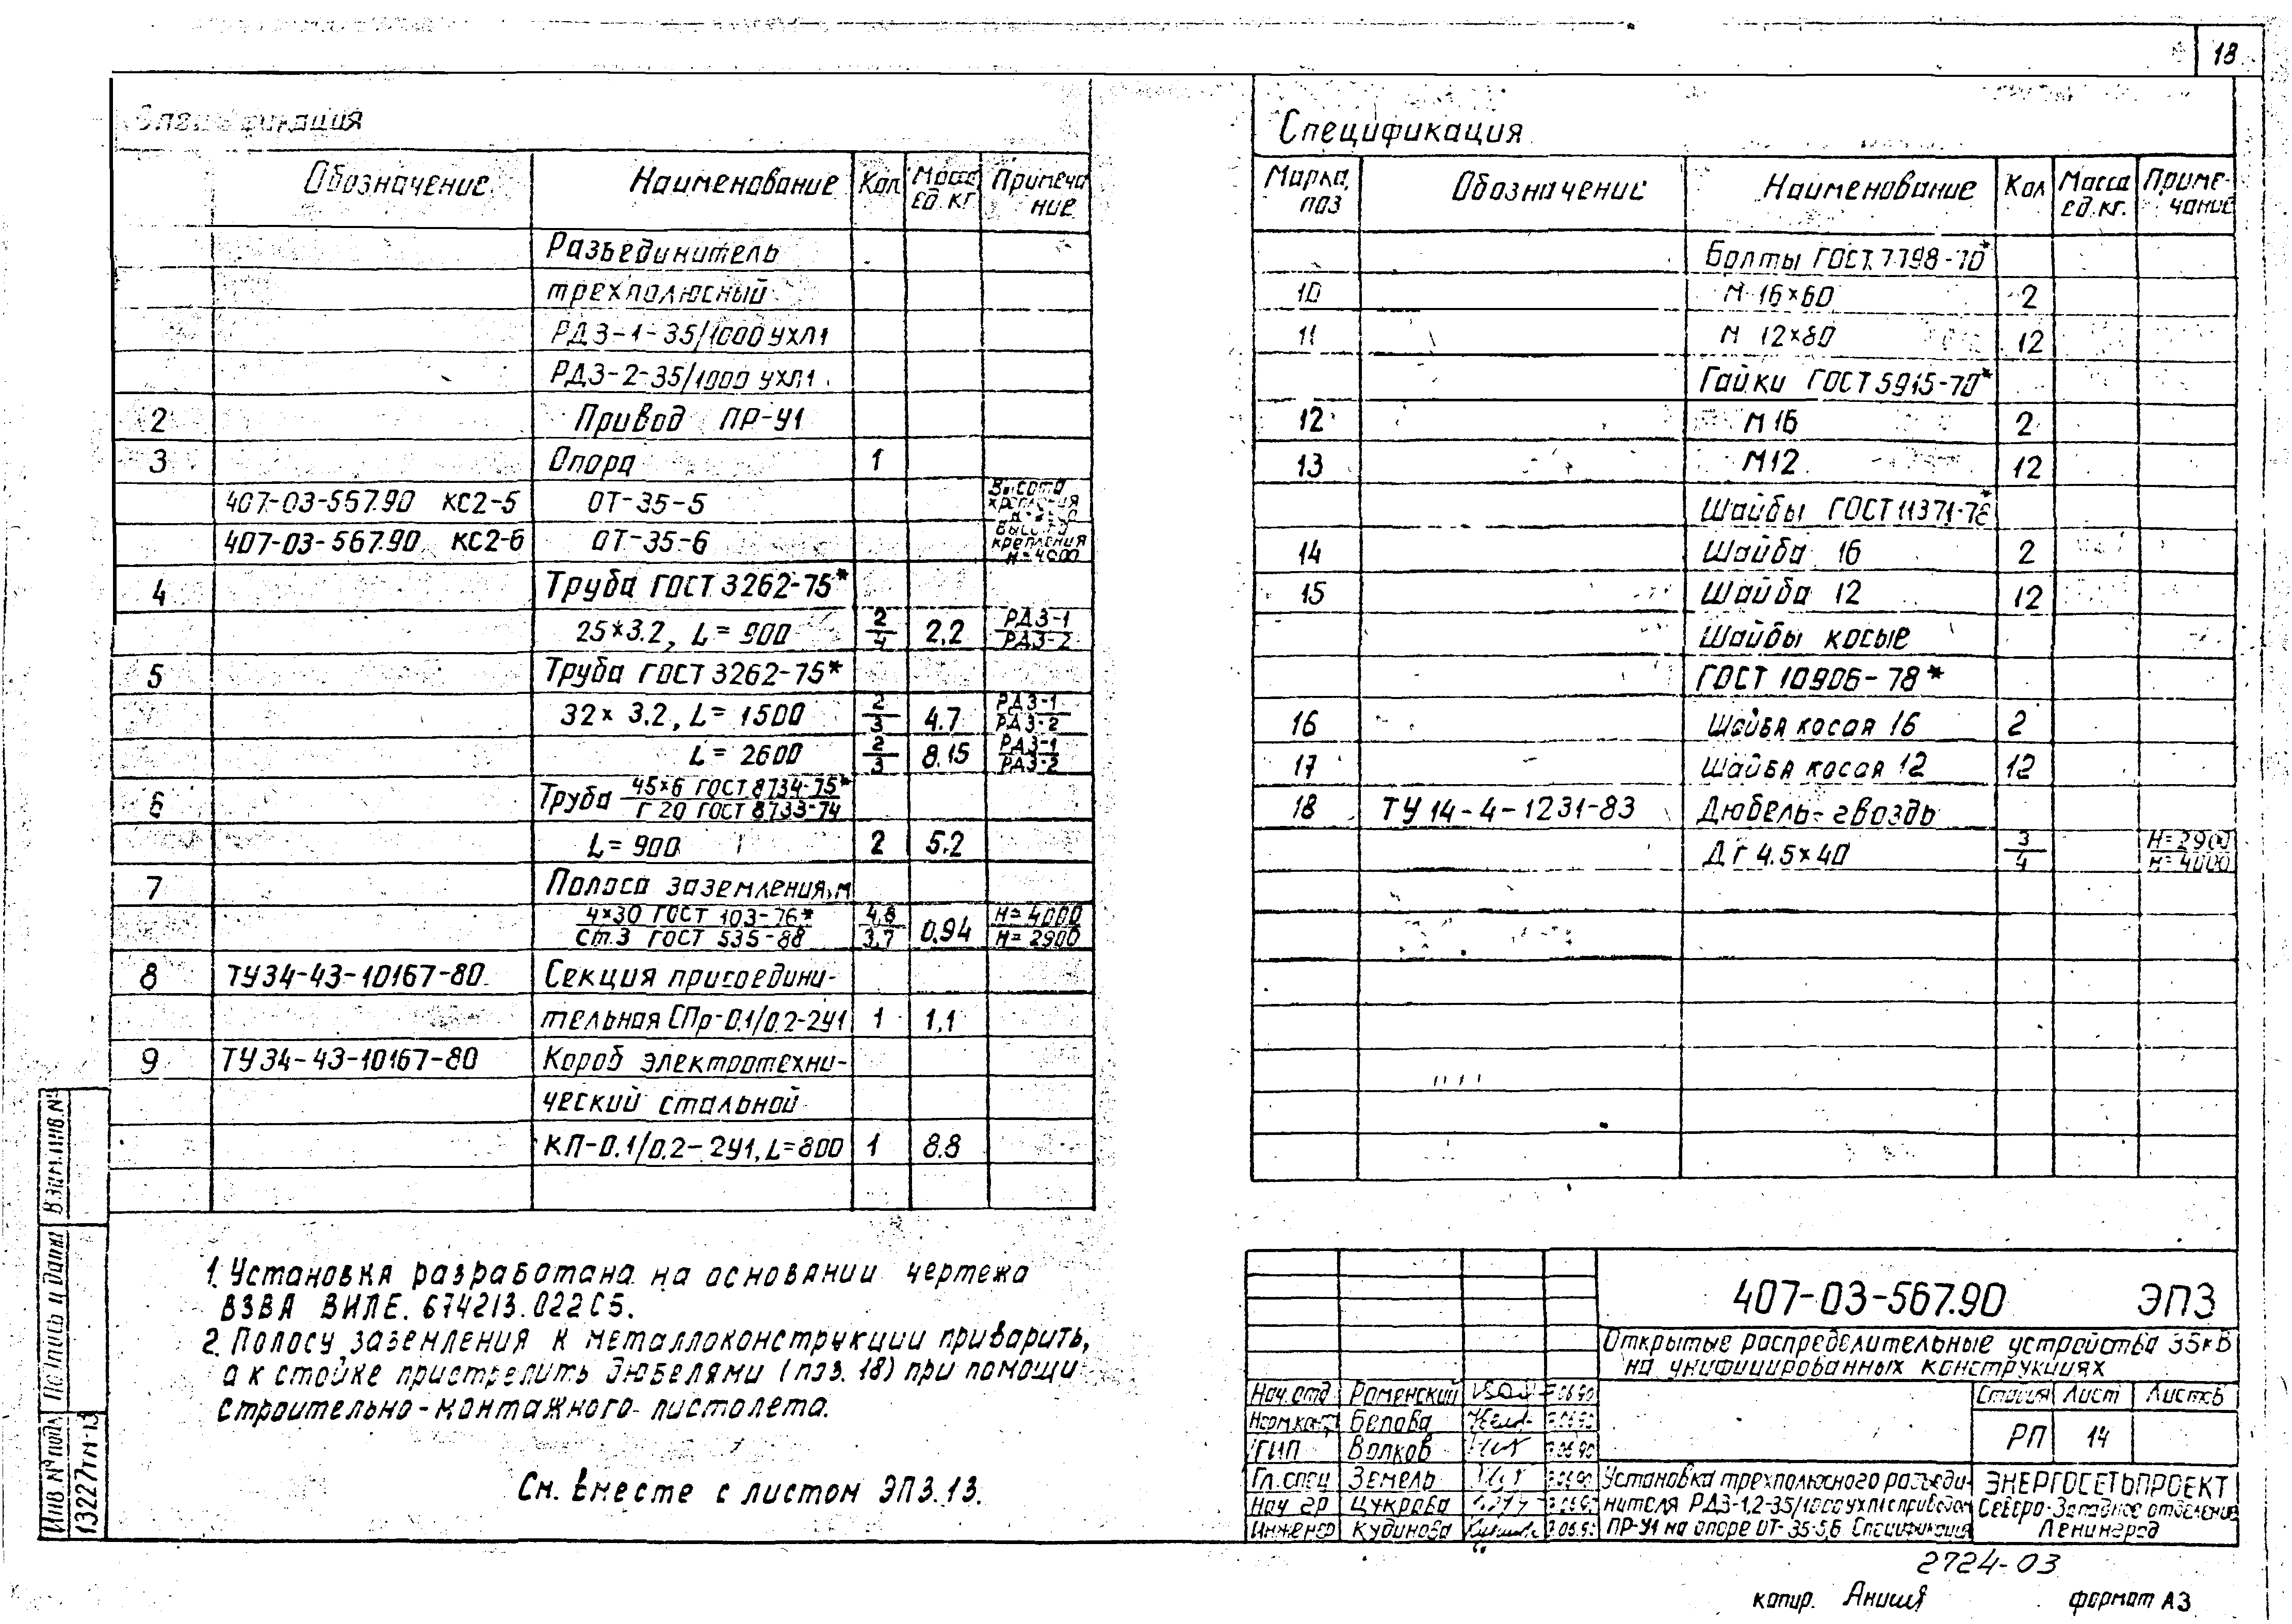 18
Спецификация
Обозначение Наименование Кол Масса ед. кг Примеча ние
Разъединитель
трехполюсный
РДЗ-1-35/1000 УХЛ1
РДЗ-2-35/1000 УХЛ1
2 Привод ПР-У1
3 Опора 1
407-03-567.90 КС2-5 ОТ-35-5 Высота крепления
407-03-567.90 КС2-6 ОТ-35-6 Высота крепления Н=4000
4 Труба ГОСТ 3262-75*
25×3.2, L=900 2/4 2,2 РДЗ-1/РДЗ-2
5 Труба ГОСТ 3262-75*
32×3.2, L=1500 2/3 4.7 РДЗ-1/РДЗ-2
L=2600 2/3 8.15 РДЗ-1/РДЗ-2
6 Труба 45×6 ГОСТ 8734-75*/Г 20 ГОСТ 8733-74
L=900 2 5.2
7 Полоса заземления, м
4×30 ГОСТ 103-76*/Ст.3 ГОСТ 535-88 4,8/3,7 0.94 Н=4000/Н=2900
8 ТУ34-43-10167-80 Секция присоедини-
тельная СПр-0.1/0.2-2У1 1 1,1
9 ТУ34-43-10167-80 Короб электротехни-
ческий стальной
КП-0.1/0.2-2У1, L=800 1 8.8
Спецификация
Марка, поз Обозначение Наименование Кол Масса ед. кг. Приме- чание
Болты ГОСТ 7798-70*
10 М 16×60 2
11 М 12×80 12
Гайки ГОСТ 5915-70*
12 М 16 2
13 М12 12
Шайбы ГОСТ 11371-78*
14 Шайба 16 2
15 Шайба 12 12
Шайбы косые
ГОСТ 10906-78*
16 Шайба косая 16 2
17 Шайба косая 12 12
18 ТУ 14-4-1231-83 Дюбель-гвоздь
ДГ 4.5×40 3/4 Н=2900/Н=4000
1. Установка разработана на основании чертежа
ВЗВА ВИЛЕ. 674213.022С5.
2. Полосу заземления к металлоконструкции приварить,
а к стойке пристрелить дюбелями (поз. 18) при помощи
строительно-монтажного пистолета.
См. вместе с листом ЭП3.13.
Инв № подл Подпись и дата Взам.инв.№
13227тм-т3
407-03-567.90 ЭП3
Открытые распределительные устройства 35кВ
на унифицированных конструкциях
Нач.отд Роменский 06.90
Норм.контр Белова
ГИП Волков
Гл.спец Земель
Нач гр Цукрова
Инженер Кудинова
Стадия Лист Листов
РП 14
Установка трехполюсного разъеди-
нителя РДЗ-1,2-35/1000 УХЛ1 с приводом
ПР-У1 на опоре ОТ-35-5,6 Спецификация
ЭНЕРГОСЕТЬПРОЕКТ
Северо-Западное отделение
Ленинград
2724-03
копир. формат А3